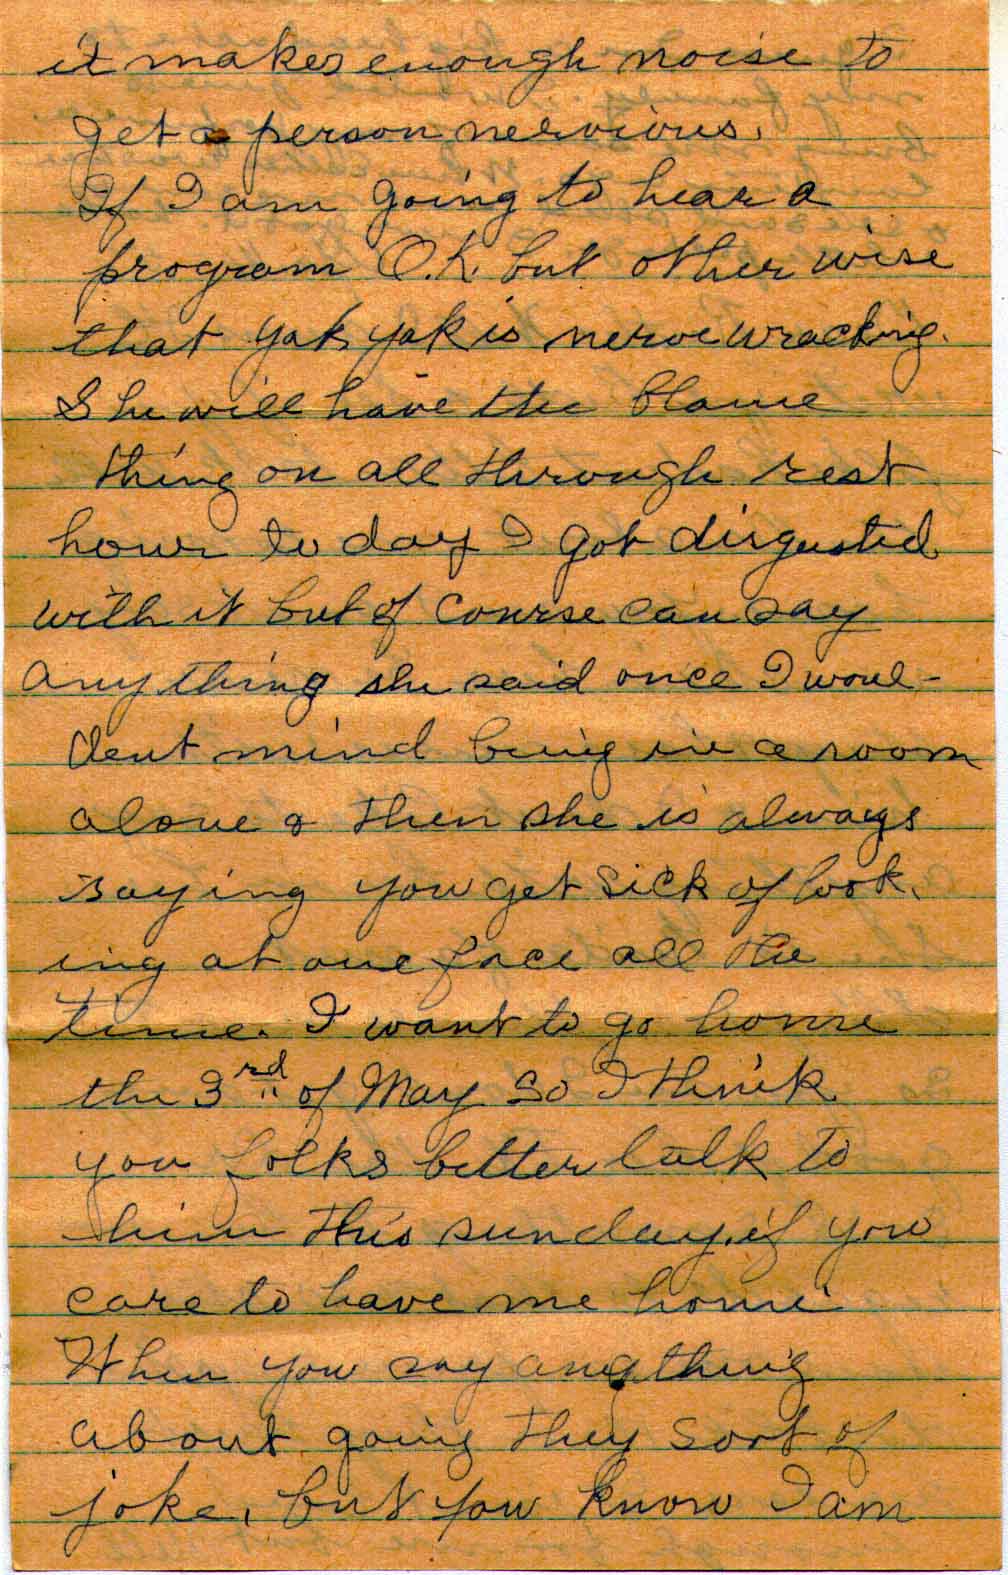 it makes enough noise to
get a person nervious.
If I am going to hear a
program O.K. but other wise
that yak yak is nerve wracking.
She will have the blame
thing on all through rest
hour to day I got disgusted
with it but of course can say
anything she said once I woul-
dent mind being in a room
alone & then she is always
saying you get sick of look-
ing at one face all the
time. I want to go home
the 3rd of May so I think
you folks better talk to
him this sunday, if you
care to have me home
When you say anything
about going they sort of
joke, but you know I am